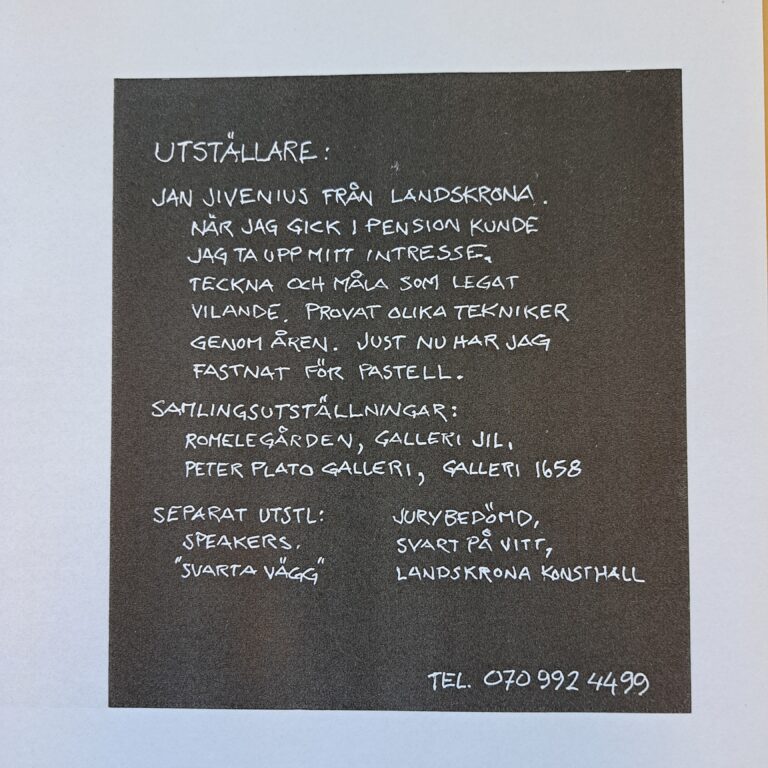 UTSTÄLLARE:
JAN JIVENIUS FRÅN LANDSKRONA.
NÄR JAG GICK I PENSION KUNDE
JAG TA UPP MITT INTRESSE,
TECKNA OCH MÅLA SOM LEGAT
VILANDE. PROVAT OLIKA TEKNIKER
GENOM ÅREN. JUST NU HAR JAG
FASTNAT FÖR PASTELL.
SAMLINGSUTSTÄLLNINGAR:
ROMELEGÅRDEN, GALLERI JIL,
PETER PLATO GALLERI, GALLERI 1658
SEPARAT UTSTL:
SPEAKERS.
"SVARTA VÄGG"
JURYBEDÖMD,
SVART PÅ VITT,
LANDSKRONA KONSTHALL
TEL. 070 992 4499